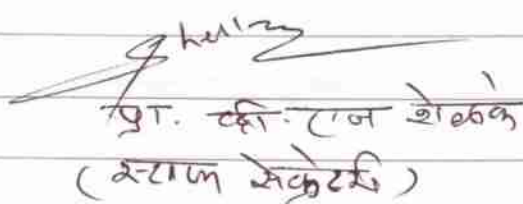 प्रा. व्ही. राज शेळके
(स्टाफ सेक्रेटरी)